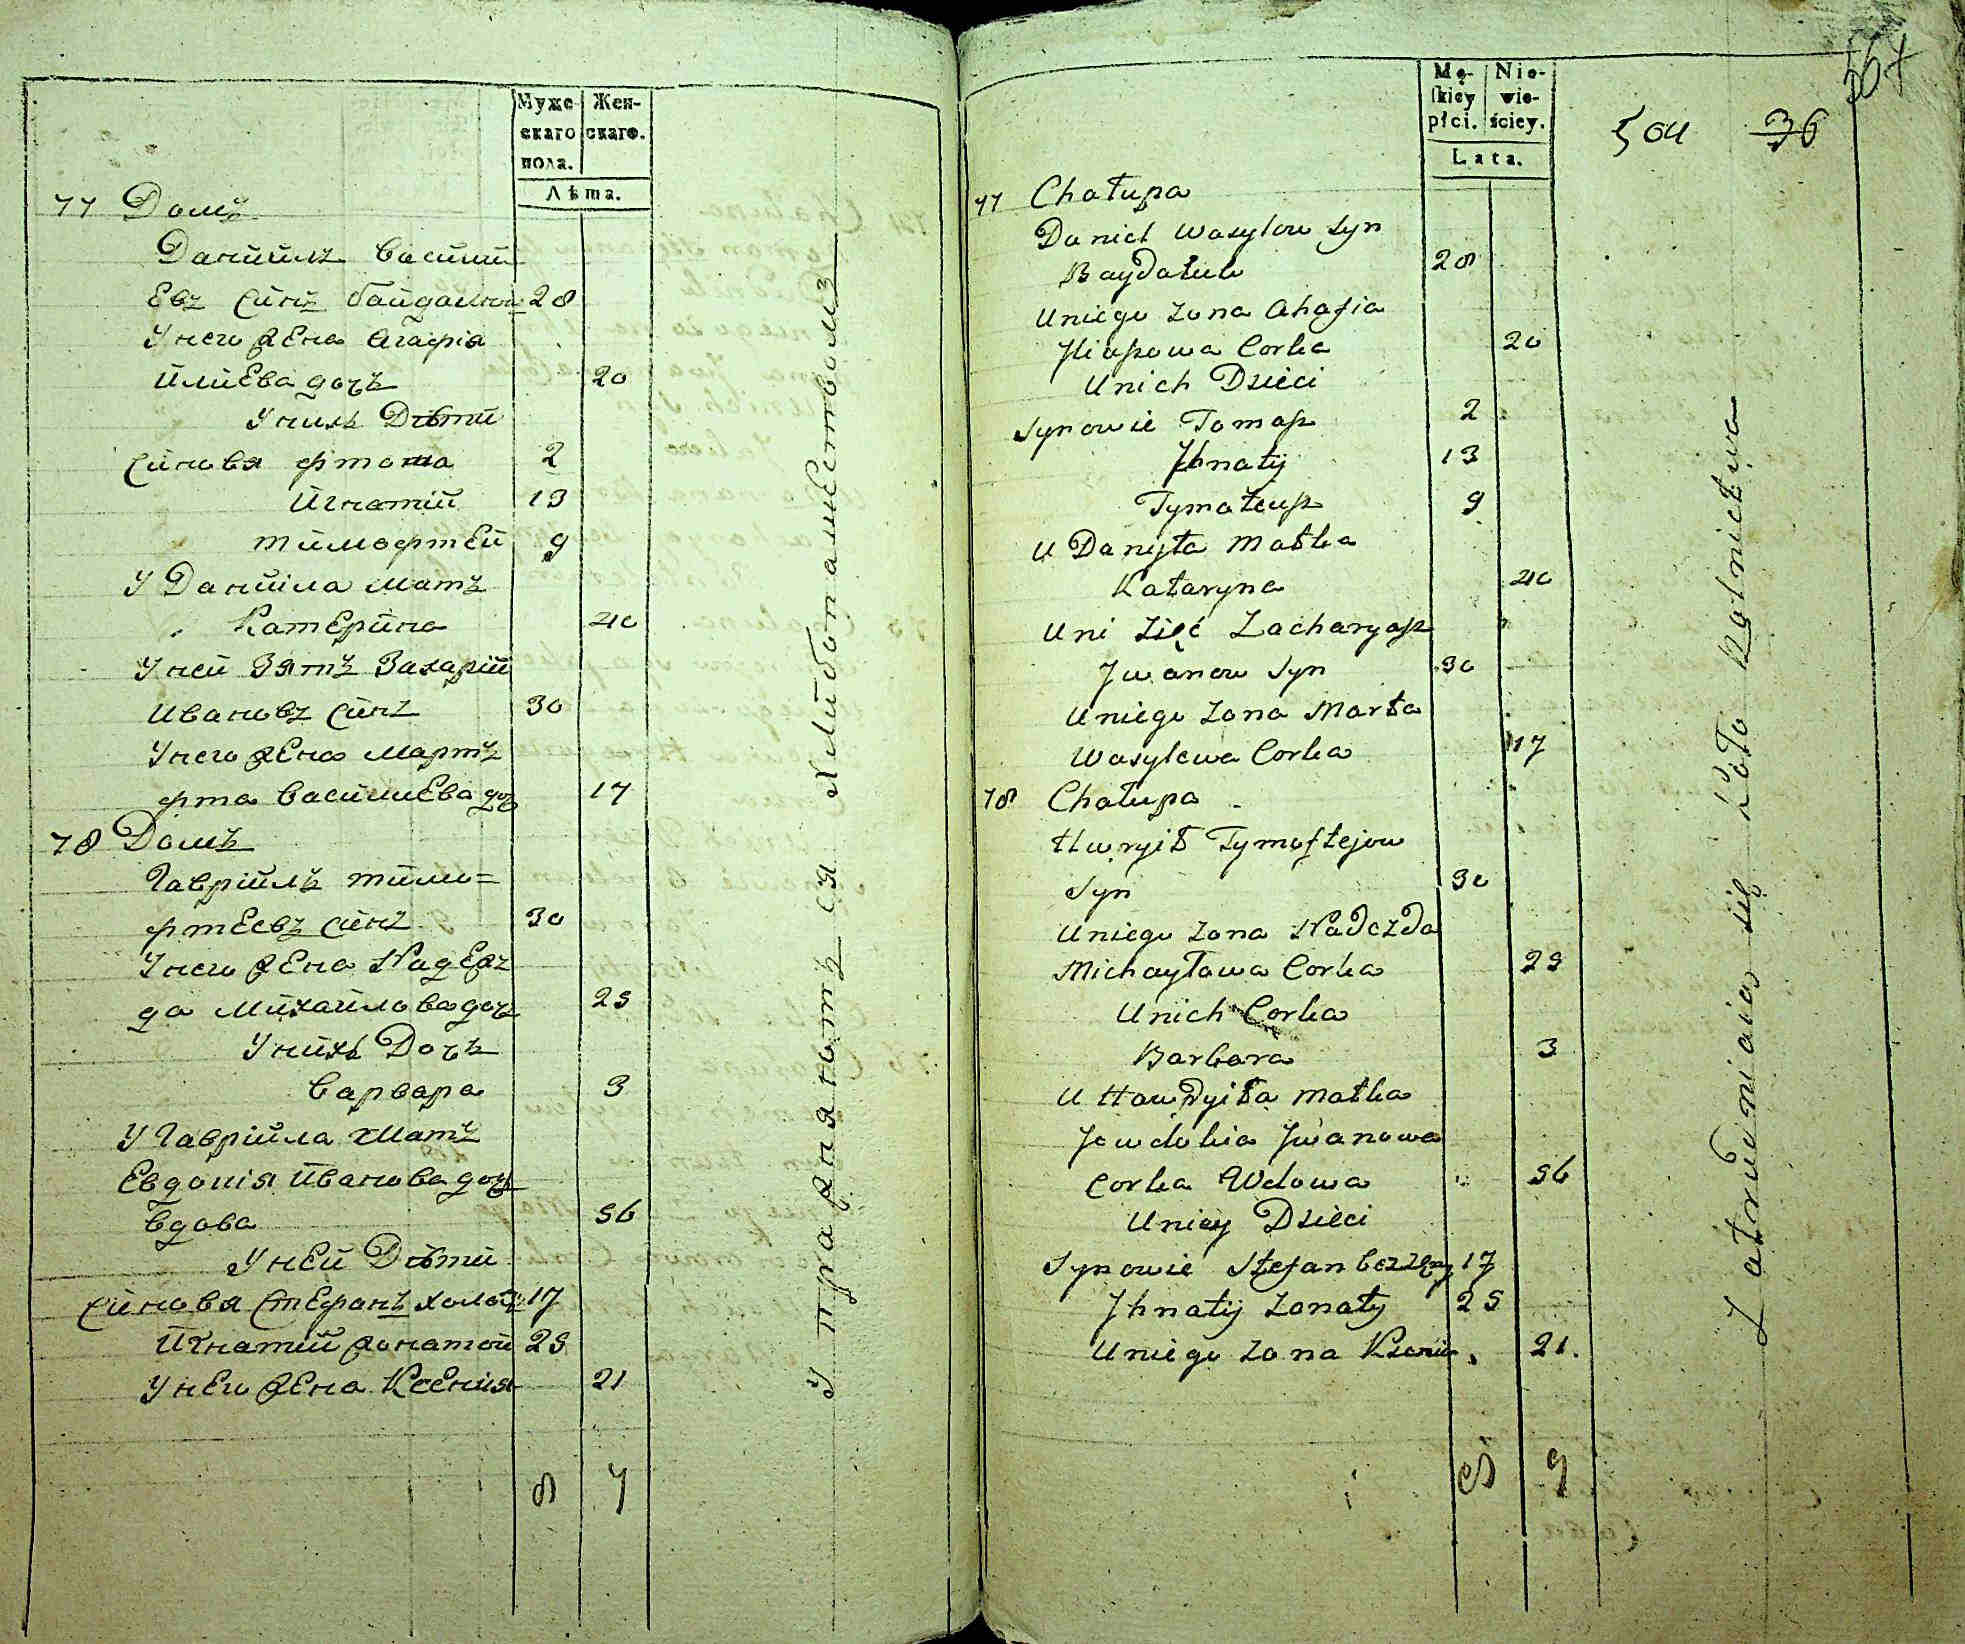 Муже
скаго
пола.
Жен-
скаго.
Лѣта.
77 Домъ
Данийлъ Василий
Евъ сйнъ байдалюкъ 28
У него жена Агафiя
йлиЕва дочъ 20
У нихъ Дѣтй
сйновя фтома 2
Йгнатiй 13
тимофтЕй 9
У Данийла мать
Катерйна 40
У ней Зять Захарiй
Ивановъ сйнъ 30
У него жена Мартъ
фта ВасйлиЕва доч 17
78 Домъ
Гаврiилъ тимо=
фтЕевъ сйнъ 30
У него жЕна НадЕж
да Мйхайлова доч 25
У нйхъ Дочъ
Варвара 3
У Гаврiйла Мать
Евдокiя йванова доч
вдова 56
У нЕй Дѣтй
сйновя стЕфанъ холост 17
Йгнатiй жонатой 25
У нЕго жЕна КсЕния 21
8 7
Упражняютъ ся хлибопашЕствомъ
Mę-
ſkiey
płci.
Nie-
wie-
ściey.
Lata.
504 36
564
77 Chałupa
Daniel Wasylow Syn
Baydałuk 28
U niego Zona Ahafia
Jliaszowa Corka 20
U nich Dzieci
Synowie Tomasz 2
Jhnatÿ 13
Tymateusz 9
U Danyła Matka
Kataryna 40
U ni Zięć Zacharyasz
Jwanow Syn 30
U niego Zona Marta
Wasylewa Corka 17
78 Chałupa
Hwryił Tymoftejow
Syn 30
U niego Zona Nadezda
Michayłowa Corka 25
U nich Corka
Barbara 3
U Hawryiła Matka
Jewdokia Jwanowa
Corka Wdowa 56
U niey Dzieci
Synowie Stefan bezżen 17
Jhnatÿ Zonatÿ 25
U niego Zona Ksenia 21.
8 7
Zatrudniaią się koło Rolnictwa